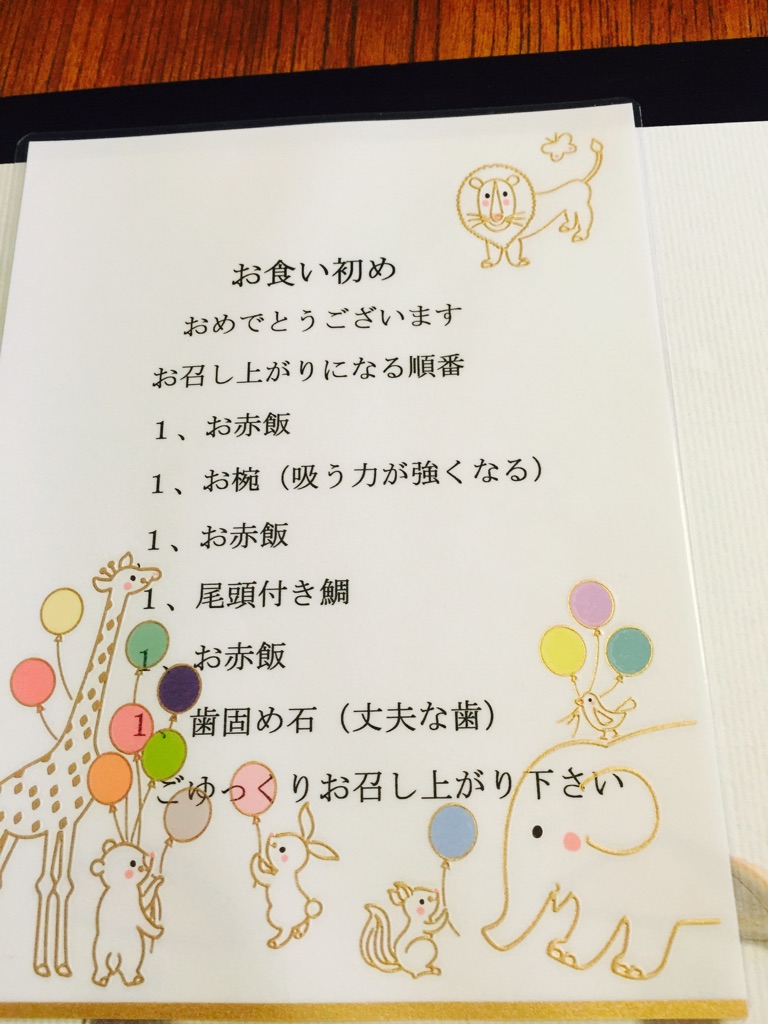 お食い初め
おめでとうございます
お召し上がりになる順番
１、お赤飯
１、お椀（吸う力が強くなる）
１、お赤飯
１、尾頭付き鯛
１、お赤飯
１、歯固め石（丈夫な歯）
ごゆっくりお召し上がり下さい